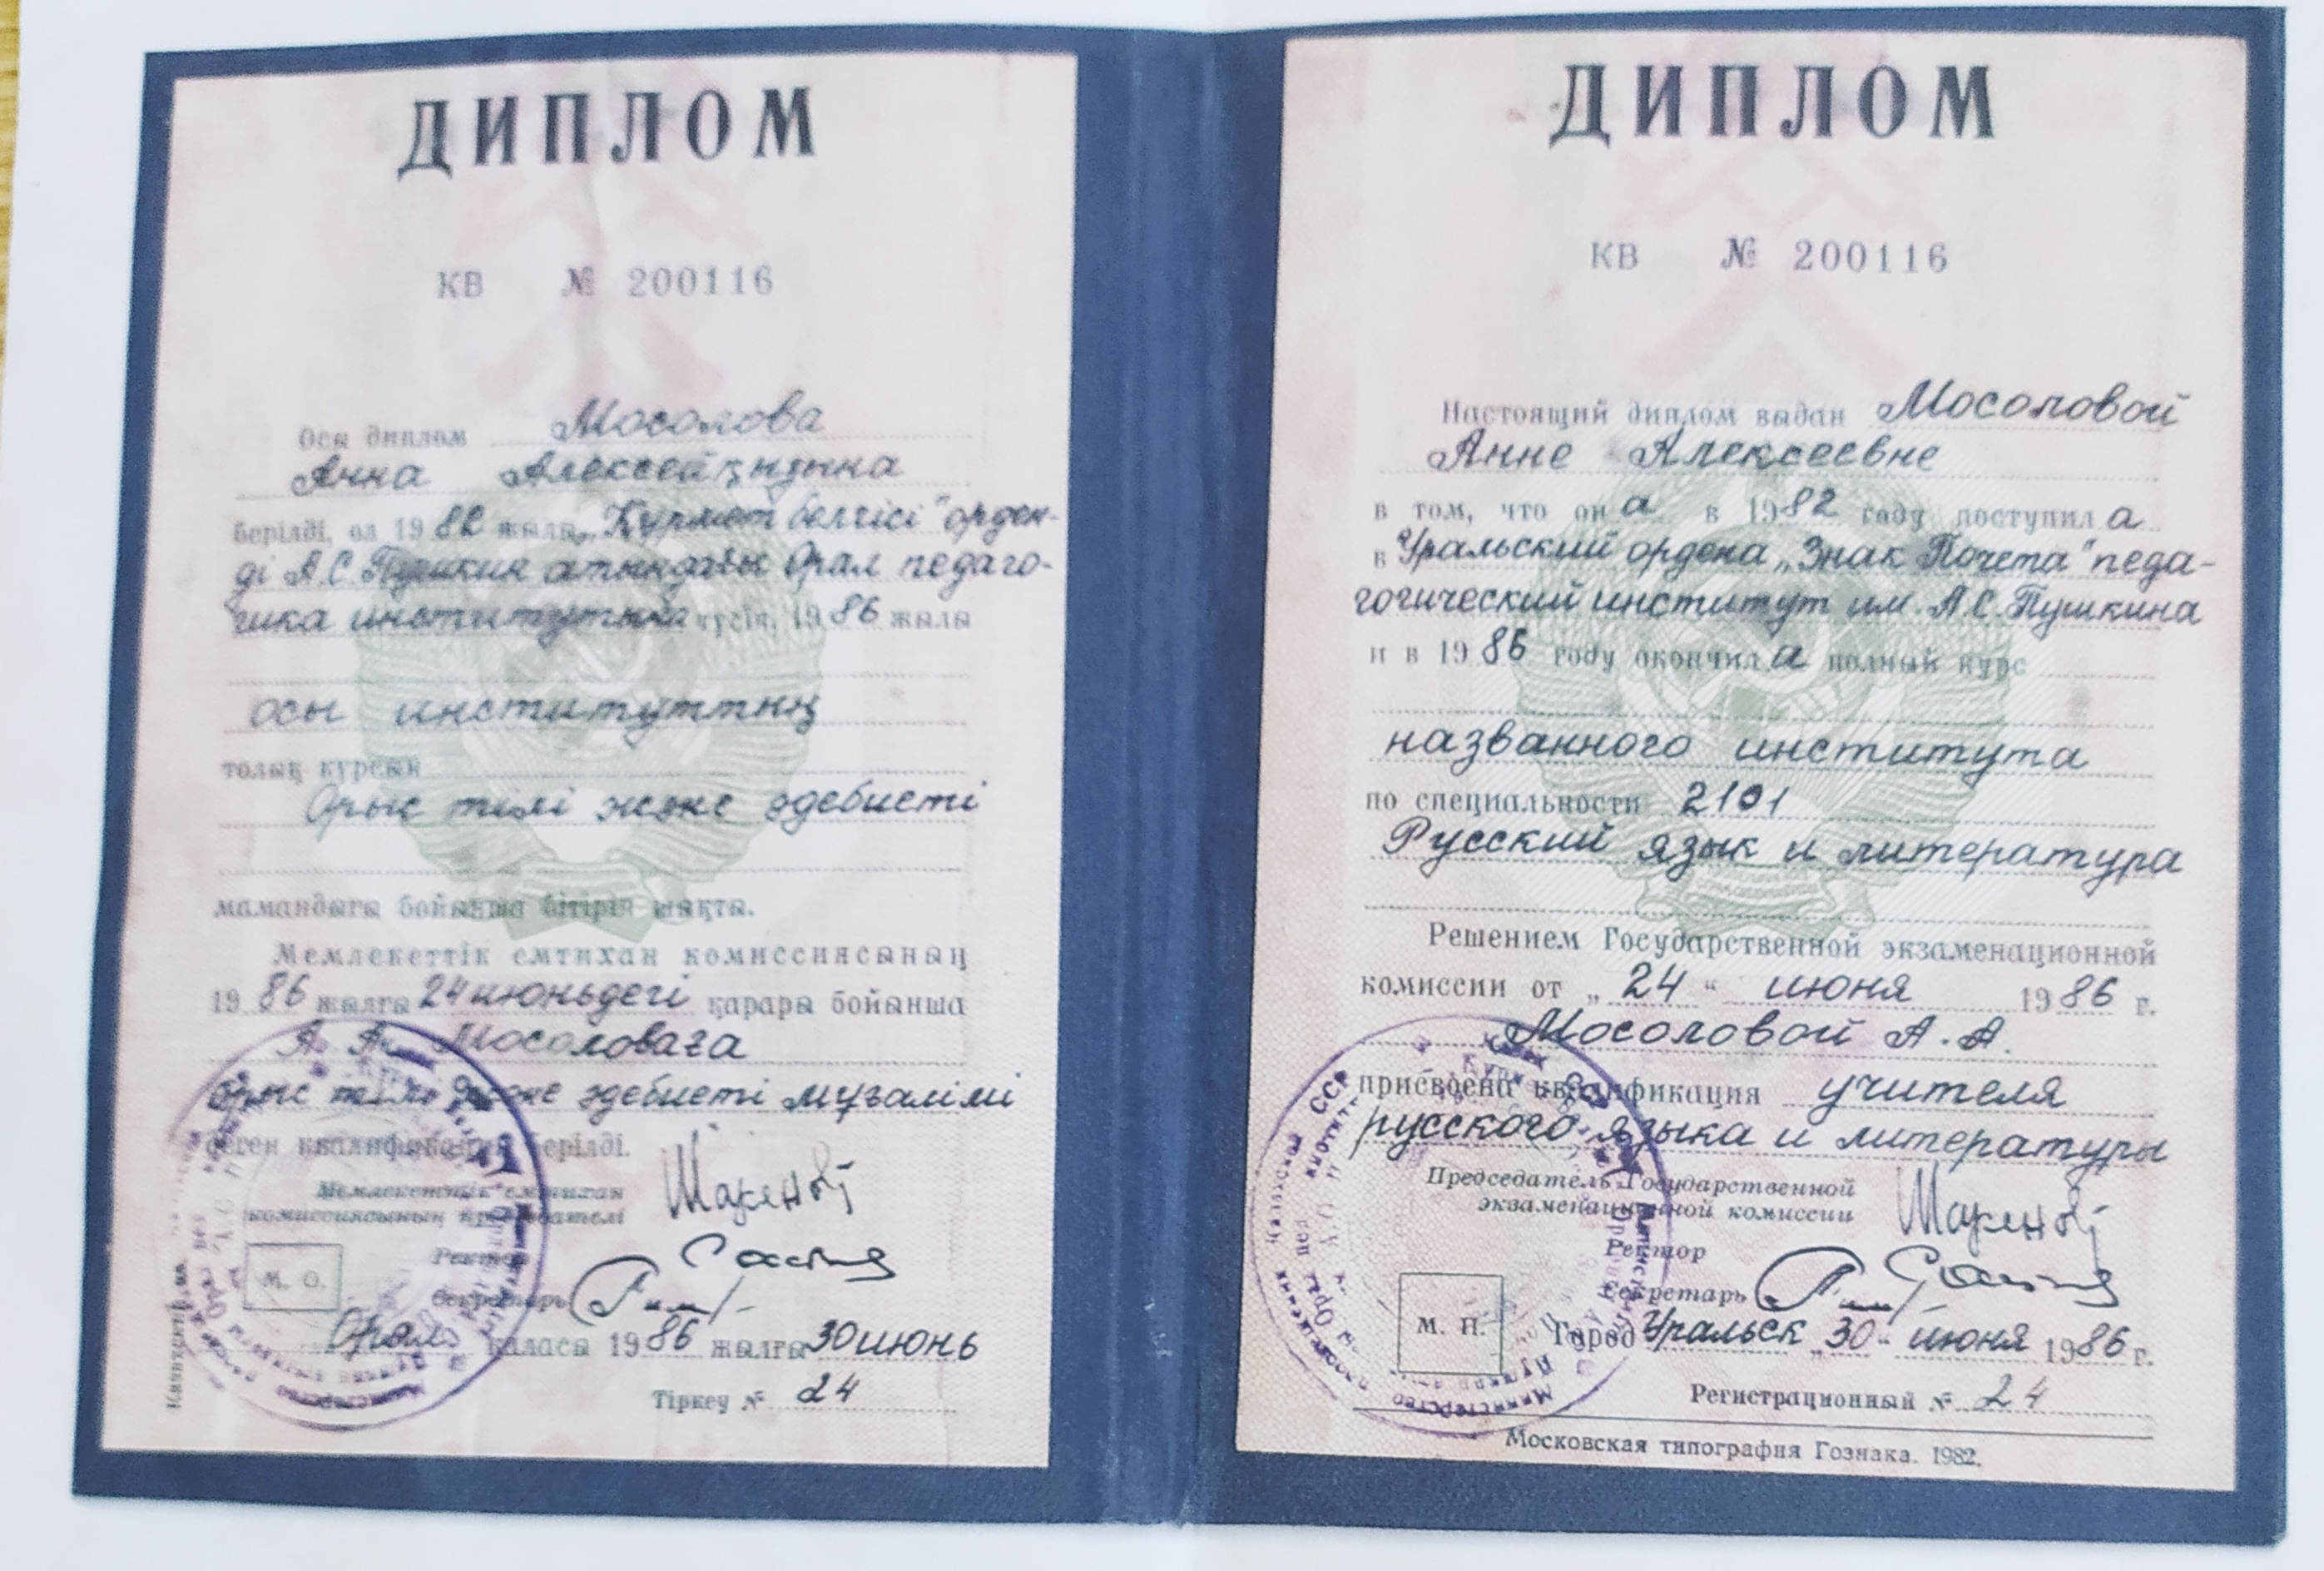 ДИПЛОМ
КВ № 200116
Осы диплом Мосолова
Анна Алексейқызына
берілді, ол 1982 жылы „Құрмет белгісі" орден-
ді А.С. Пушкин атындағы Орал педаго-
гика институтына түсіп, 1986 жылы
осы институттың
толық курсын
Орыс тілі және әдебиеті
мамандығы бойынша бітіріп шықты.
Мемлекеттік емтихан комиссиясының
1986 жылғы 24 июньдегі қарары бойынша
А. А. Мосоловаға
орыс тілі және әдебиеті мұғалімі
деген квалификация берілді.
Мемлекеттік емтихан
комиссиясының председателі
Ректор
Секретарь
М. О.
Орал қаласы 1986 жылғы 30 июнь
Тіркеу № 24
ДИПЛОМ
КВ № 200116
Настоящий диплом выдан Мосоловой
Анне Алексеевне
в том, что она в 1982 году поступила
в Уральский ордена „Знак Почета" педа-
гогический институт им. А.С. Пушкина
и в 1986 году окончила полный курс
названного института
по специальности 2101
Русский язык и литература
Решением Государственной экзаменационной
комиссии от „24" июня 1986 г.
Мосоловой А. А.
присвоена квалификация учителя
русского языка и литературы
Председатель Государственной
экзаменационной комиссии
Ректор
Секретарь
М. П.
Город Уральск „30" июня 1986 г.
Регистрационный № 24
Московская типография Гознака. 1982.